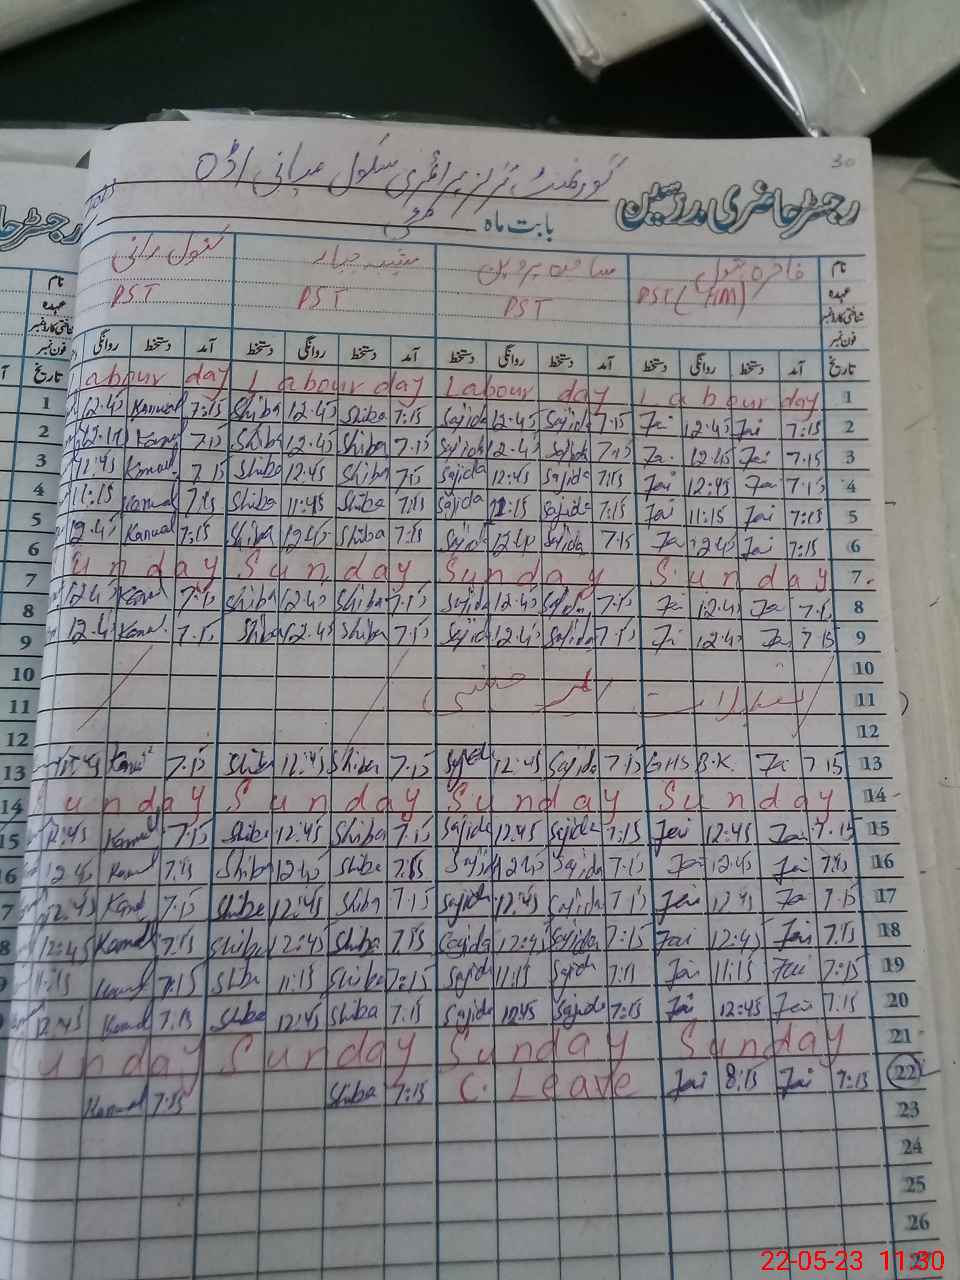 30
گورنمنٹ گرلز پرائمری سکول میانی اڈہ
رجسٹر حاضری مدرسین
بابت ماہ مئی
نام فاخرہ بتول ساجدہ پروین شیبہ جبار کنول رانی
عہدہ PST (HM) PST PST PST
شناختی کارڈ نمبر
فون نمبر
تاریخ آمد دستخط روانگی دستخط آمد دستخط روانگی دستخط آمد دستخط روانگی دستخط آمد دستخط روانگی
Labour day Labour day Labour day Labour day 1
12.45 Kanwal 7:15 Shiba 12.45 Shiba 7:15 Sajida 12.45 Sajida 7.15 Jai 12.45 Jai 7:15 2
Kanwal 7.15 Shiba 12.45 Shiba 7.15 Sajida 12.45 Sajida 7.15 Jai 12.45 Jai 7.15 3
11:45 Kanwal 7.15 Shiba 12:45 Shiba 7:15 Sajida 12:45 Sajida 7:15 Jai 12:45 Jai 7.15 4
11:15 Kanwal 7:15 Shiba 11:45 Shiba 7:15 Sajida 11:15 Sajida 7:15 Jai 11:15 Jai 7:15 5
12.45 Kanwal 7:15 Shiba 12.45 Shiba 7:15 Sajida 12.45 Sajida 7.15 Jai 12.45 Jai 7:15 6
Sunday Sunday Sunday Sunday 7
12.45 Kanwal 7.15 Shiba 12.45 Shiba 7.15 Sajida 12.45 Sajida 7.15 Jai 12.45 Jai 7.15 8
12.45 Kanwal 7.15 Shiba 12.45 Shiba 7.15 Sajida 12.45 Sajida 7.15 Jai 12.45 Jai 7.15 9
10
11
12
Kanwal 7.15 Shiba 12:45 Shiba 7.15 Sajida 12:45 Sajida 7.15 GHS B.K. Jai 7.15 13
Sunday Sunday Sunday Sunday 14
12:45 Kanwal 7:15 Shiba 12:45 Shiba 7:15 Sajida 12:45 Sajida 7:15 Jai 12:45 Jai 7.15 15
12.45 Kanwal 7.15 Shiba 12.45 Shiba 7.15 Sajida 12.45 Sajida 7.15 Jai 12.45 Jai 7.15 16
12.45 Kanwal 7.15 Shiba 12:45 Shiba 7.15 Sajida 12:45 Sajida 7.15 Jai 12:45 Jai 7.15 17
12:45 Kanwal 7:15 Shiba 12:45 Shiba 7.15 Sajida 12:45 Sajida 7:15 Jai 12:45 Jai 7.15 18
11:15 Kanwal 7:15 Shiba 11:15 Shiba 7:15 Sajida 11:15 Sajida 7:11 Jai 11:15 Jai 7:15 19
12:45 Kanwal 7.15 Shiba 12:45 Shiba 7.15 Sajida 12:45 Sajida 7:15 Jai 12:45 Jai 7.15 20
Sunday Sunday Sunday Sunday 21
Kanwal 7:15 Shiba 7:15 C. Leave Jai 8:15 Jai 7:15 22
23
24
25
26
22-05-23 11:30